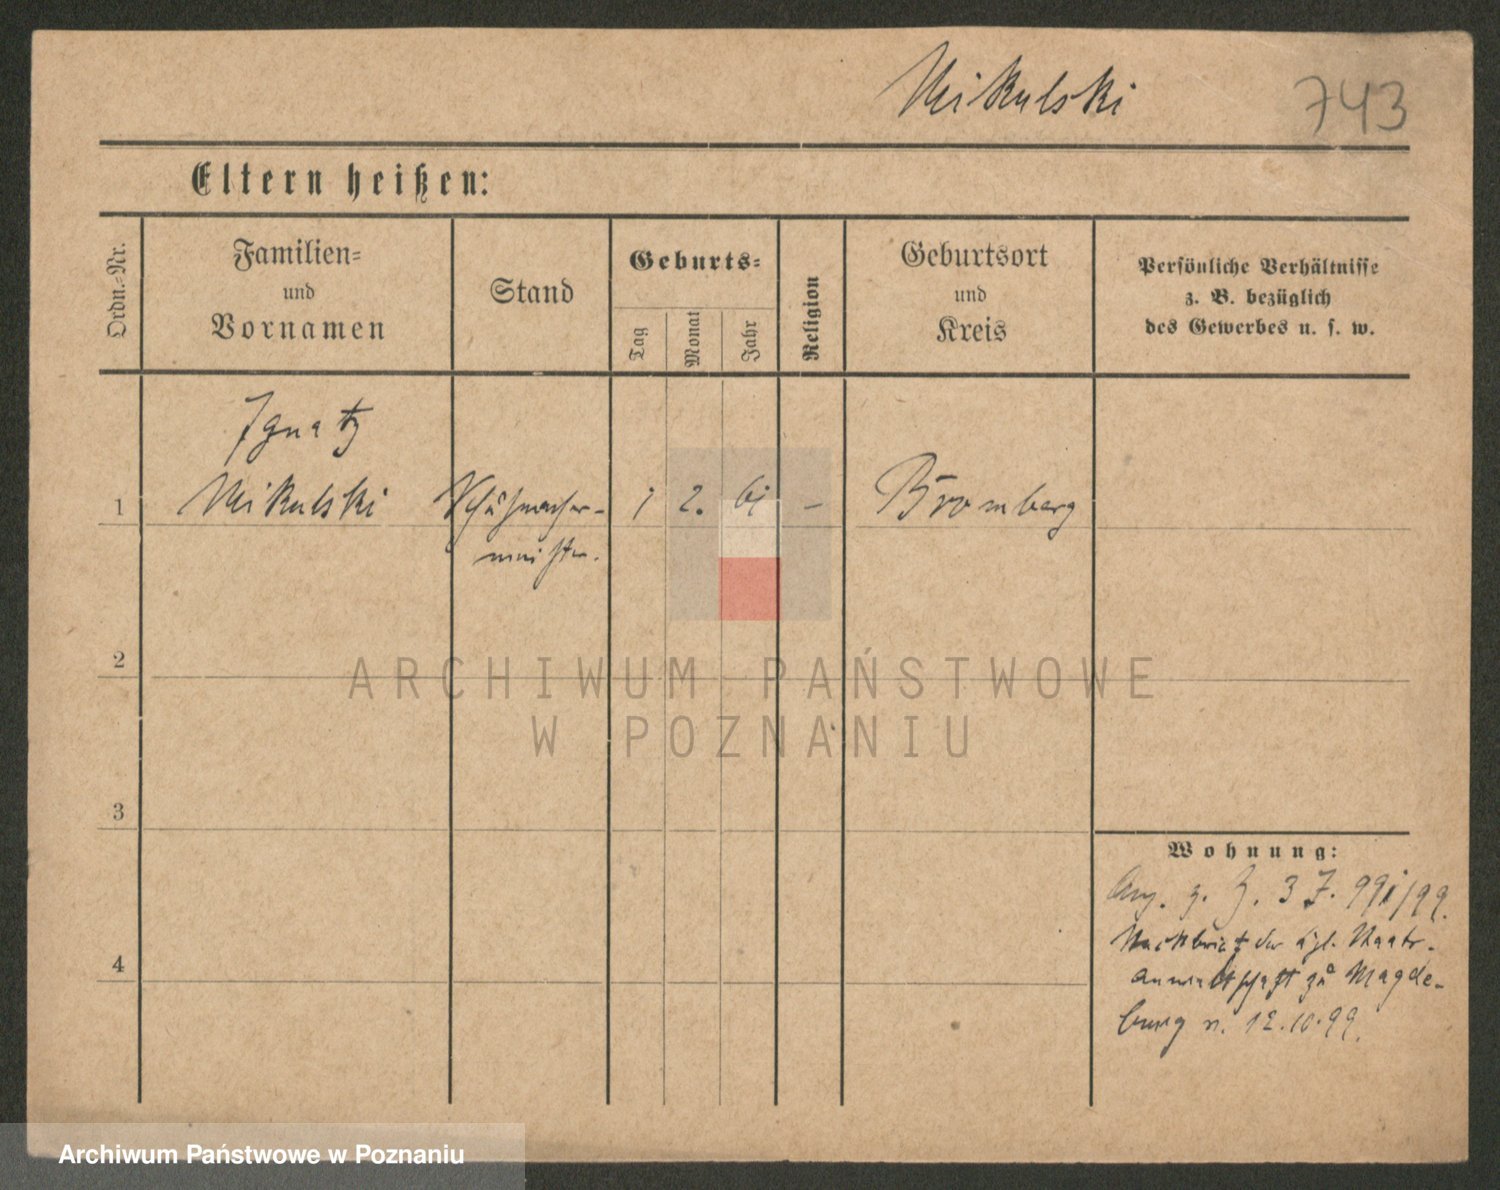 Mikulski
743
Eltern heißen:
Ordn.-Nr.
Familien-
und
Vornamen
Stand
Geburts-
Tag
Monat
Jahr
Religion
Geburtsort
und
Kreis
Persönliche Verhältnisse
z. B. bezüglich
des Gewerbes u. s. w.
Ignatz
1 Mikulski Schuhmacher- 1 2. 61 – Bromberg
meister.
2
ARCHIWUM PAŃSTWOWE
W POZNANIU
3
Wohnung:
Ang. z. 3 J. 991/99.
Steckbrief der Kgl. Staats-
4
anwaltschaft zu Magde-
burg v. 12.10.99.
Archiwum Państwowe w Poznaniu